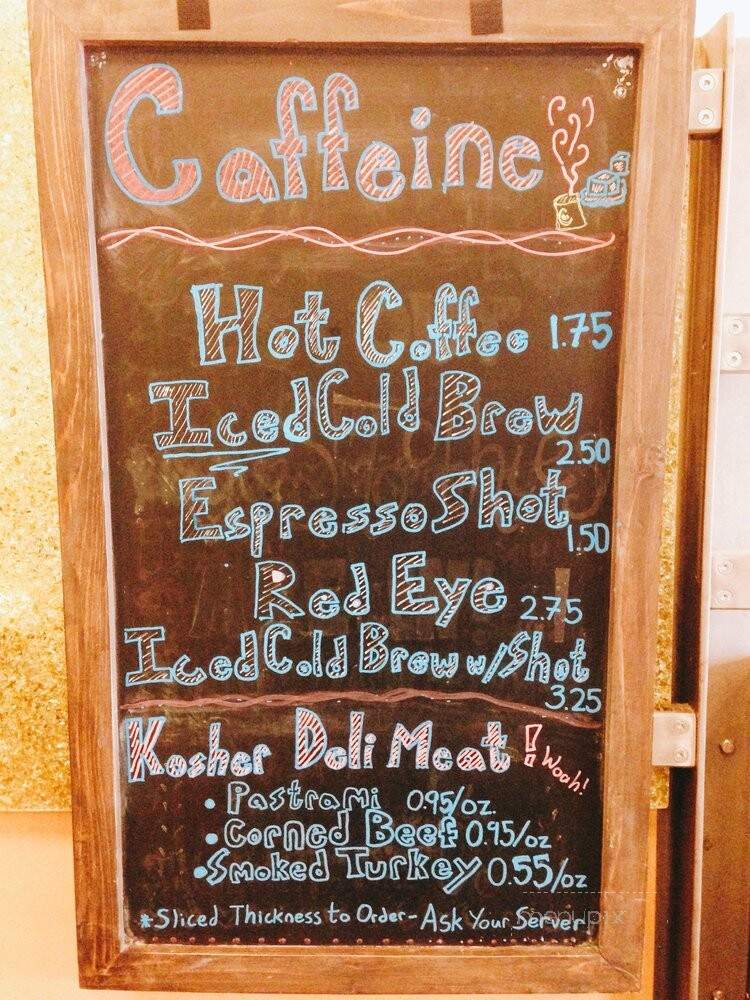 Caffeine!
Hot Coffee 1.75
Iced Cold Brew
2.50
Espresso Shot
1.50
Red Eye 2.75
Iced Cold Brew w/Shot
3.25
Kosher Deli Meat! Woah!
• Pastrami 0.95/oz.
• Corned Beef 0.95/oz
• Smoked Turkey 0.55/oz
*Sliced Thickness to Order - Ask Your Server
menupix